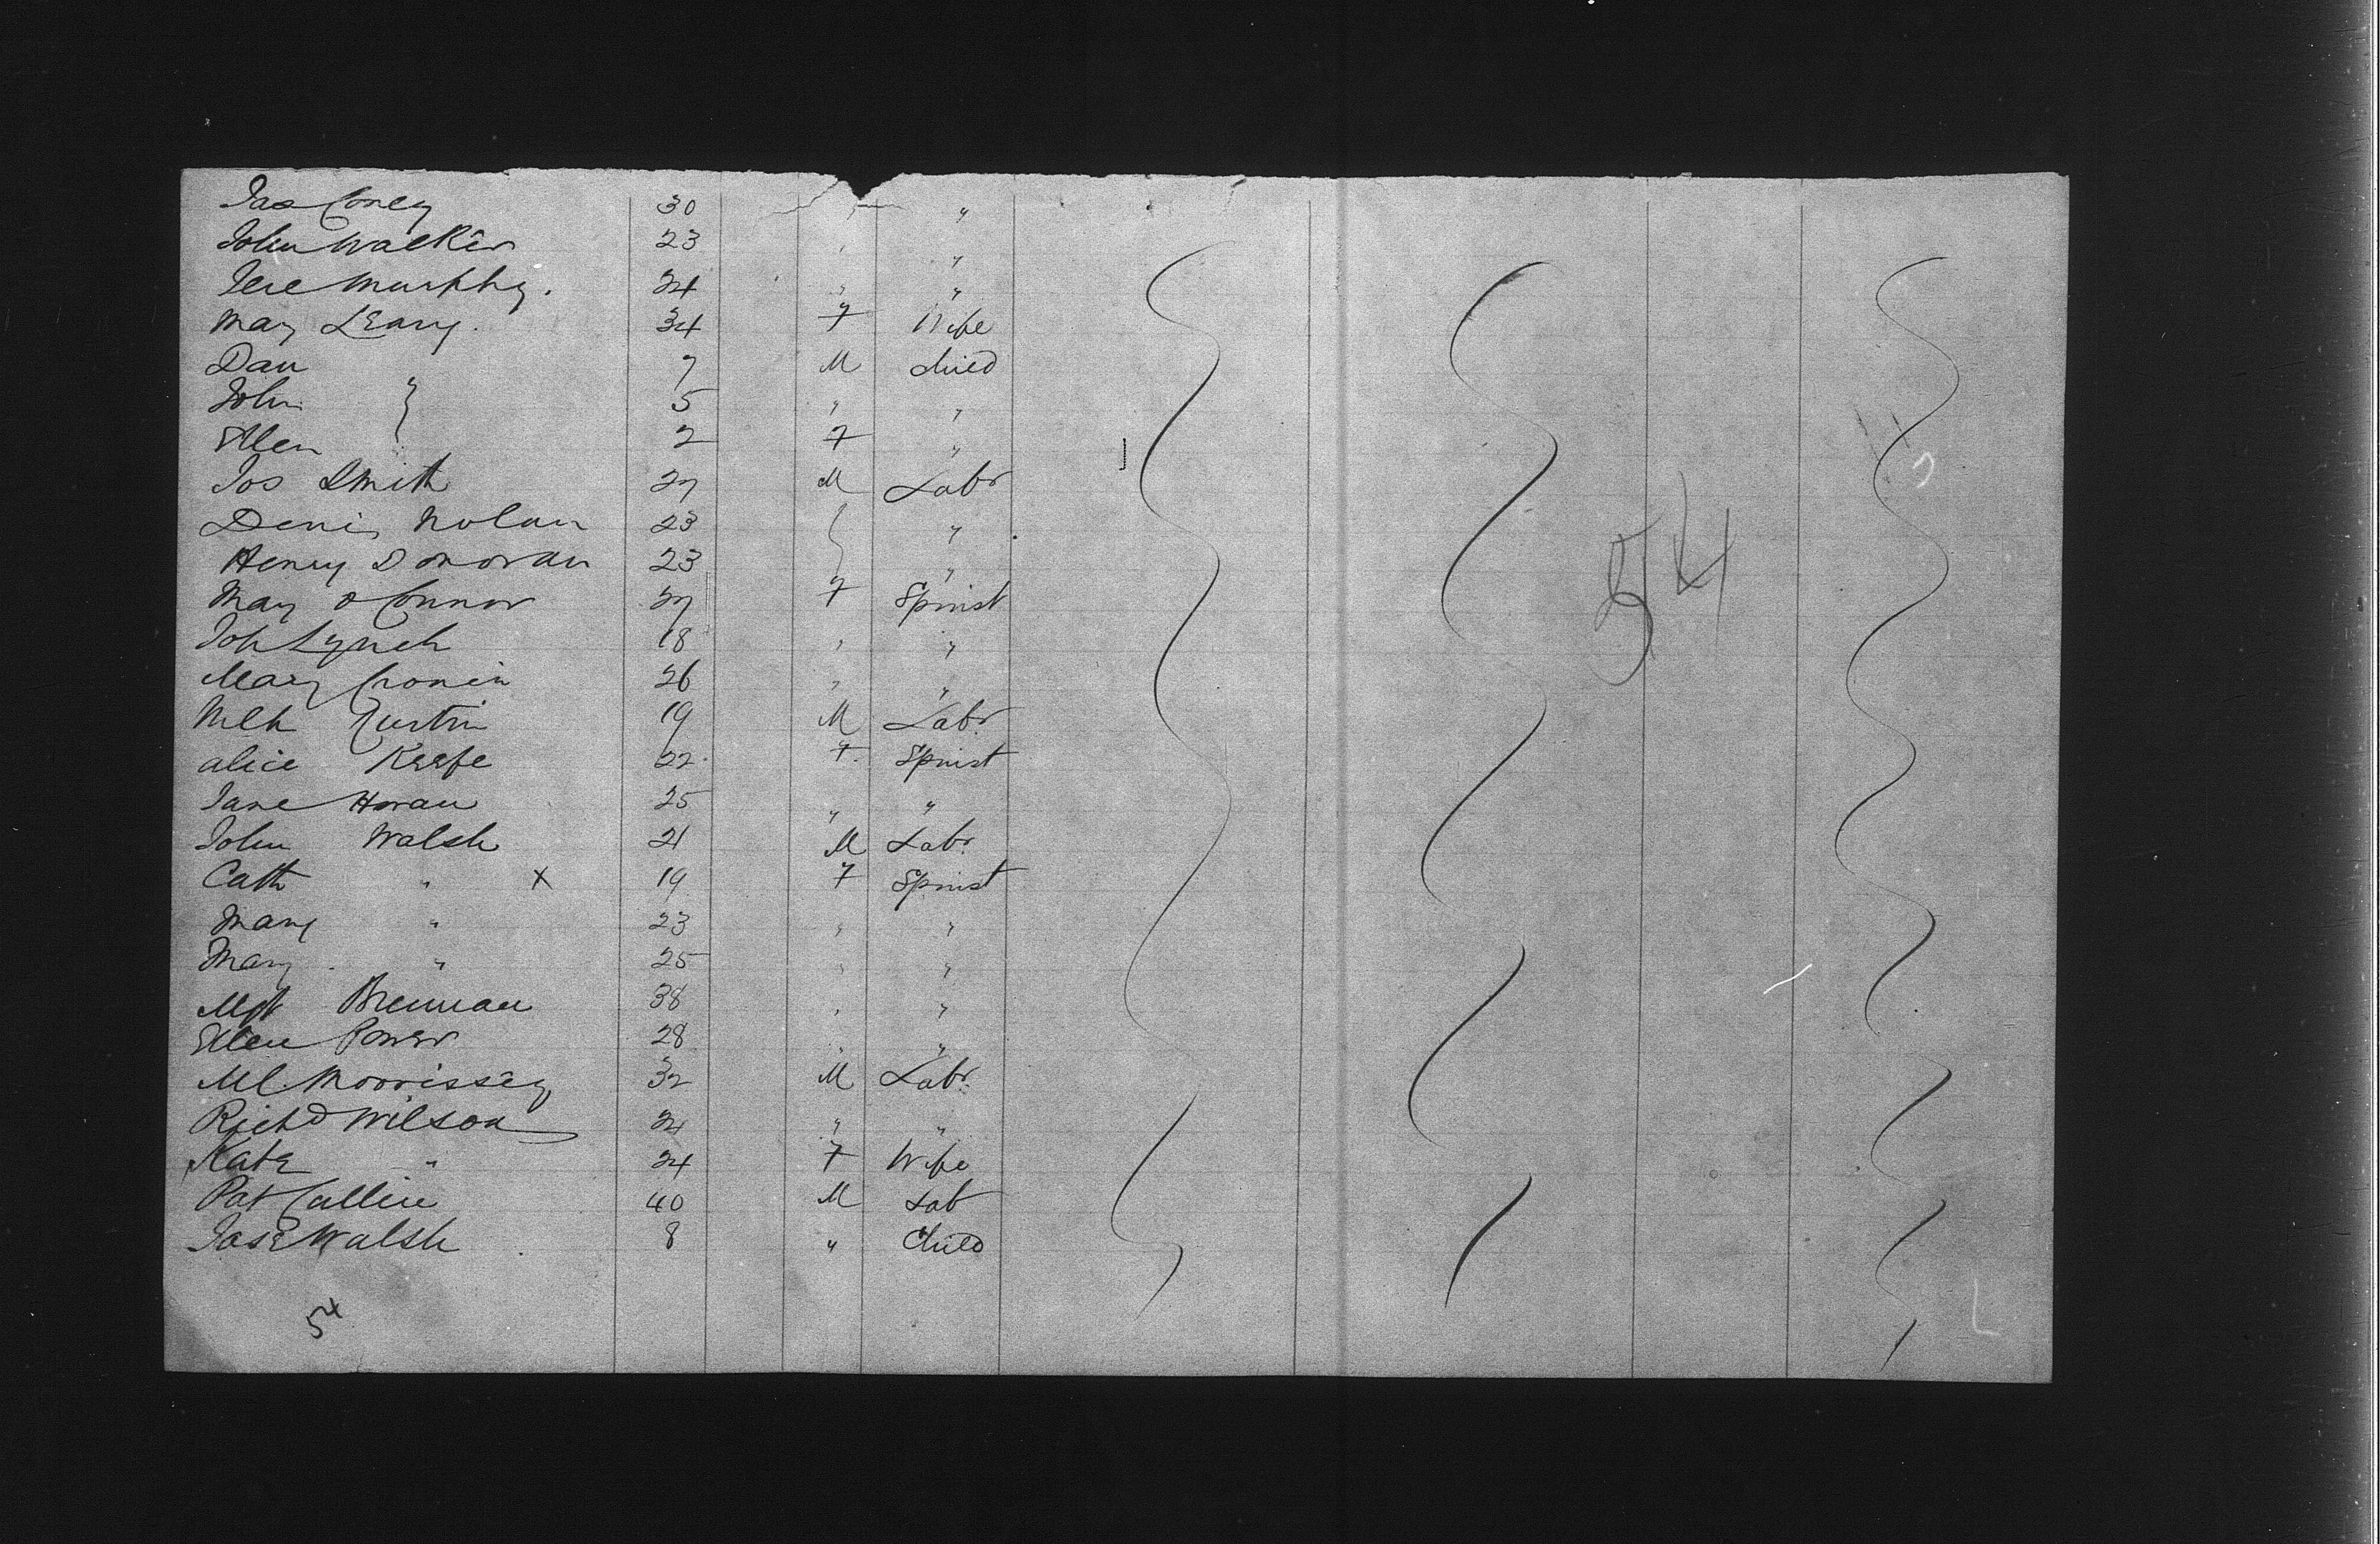 Jas Coney 30 " "
John Walker 23 " "
Jere Murphy. 24 " "
May Leary. 34 F Wife
Dan 7 M Child
John } 5 " "
Ellen 2 F "
Jos Smith 27 M Labr
Denis Nolan 23 "
Henry Donovan 23 "
May O Connor 27 F Spinst
Joh Lynch 18 " "
Mary Cronin 26 " "
Curtin 19 M Labr
Alice Keefe 22 F Spinst
Jane Horan 25 " "
John Walsh 21 M Labr
Cath " X 19 F Spinst
Mary " 23 " "
Mary " 25 " "
Mgt Brennan 38 " "
Ellen Power 28 " "
Ml. Morrissey 32 M Labr
Richd Wilson 24 " "
Kate " 24 F Wife
Pat 40 M Lab
Jas E Walsh 8 " Child
54
54